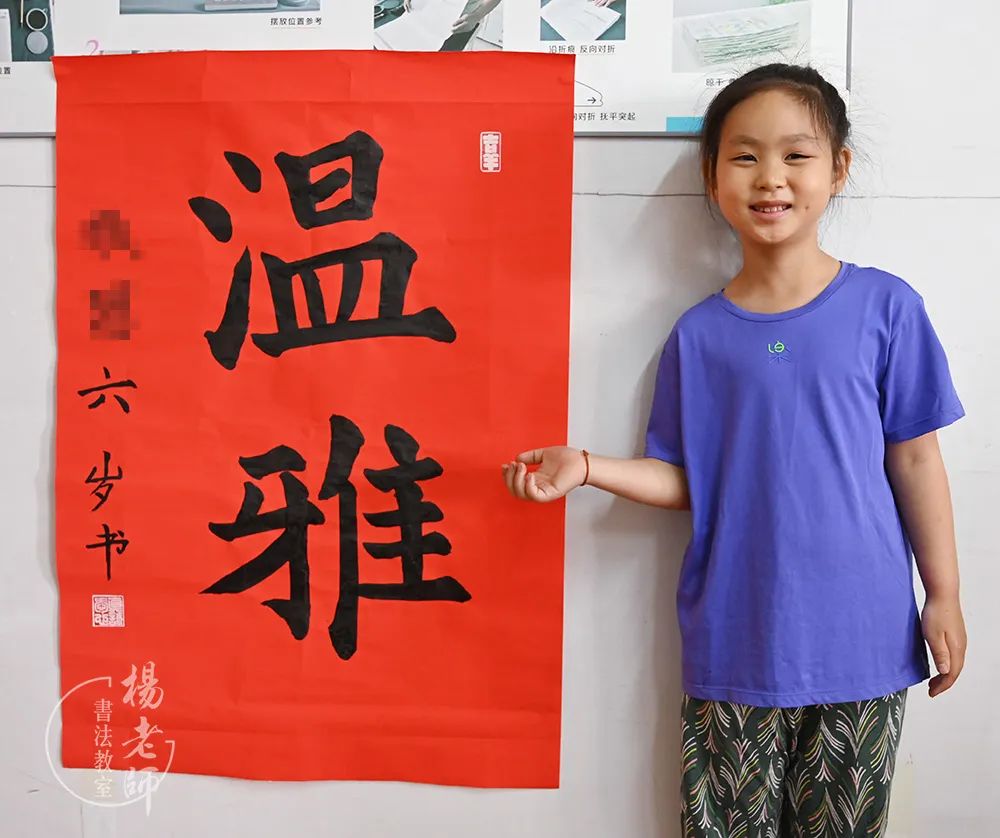 摆放位置参考
位置
沿折痕 反向对折
晾干
向对折 抚平突起
温
雅
六岁书
楊老師
書法教室